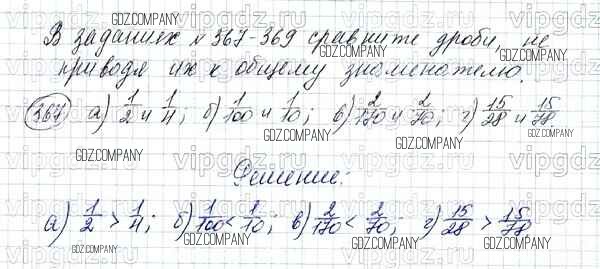 В заданиях № 367-369 сравните дроби, не
приводя их к общему знаменателю.
367 а) 1/2 и 1/4; б) 1/100 и 1/10; в) 2/170 и 2/70; г) 15/28 и 15/78
Решение:
а) 1/2 > 1/4; б) 1/100 < 1/10; в) 2/170 < 2/70; г) 15/28 > 15/78